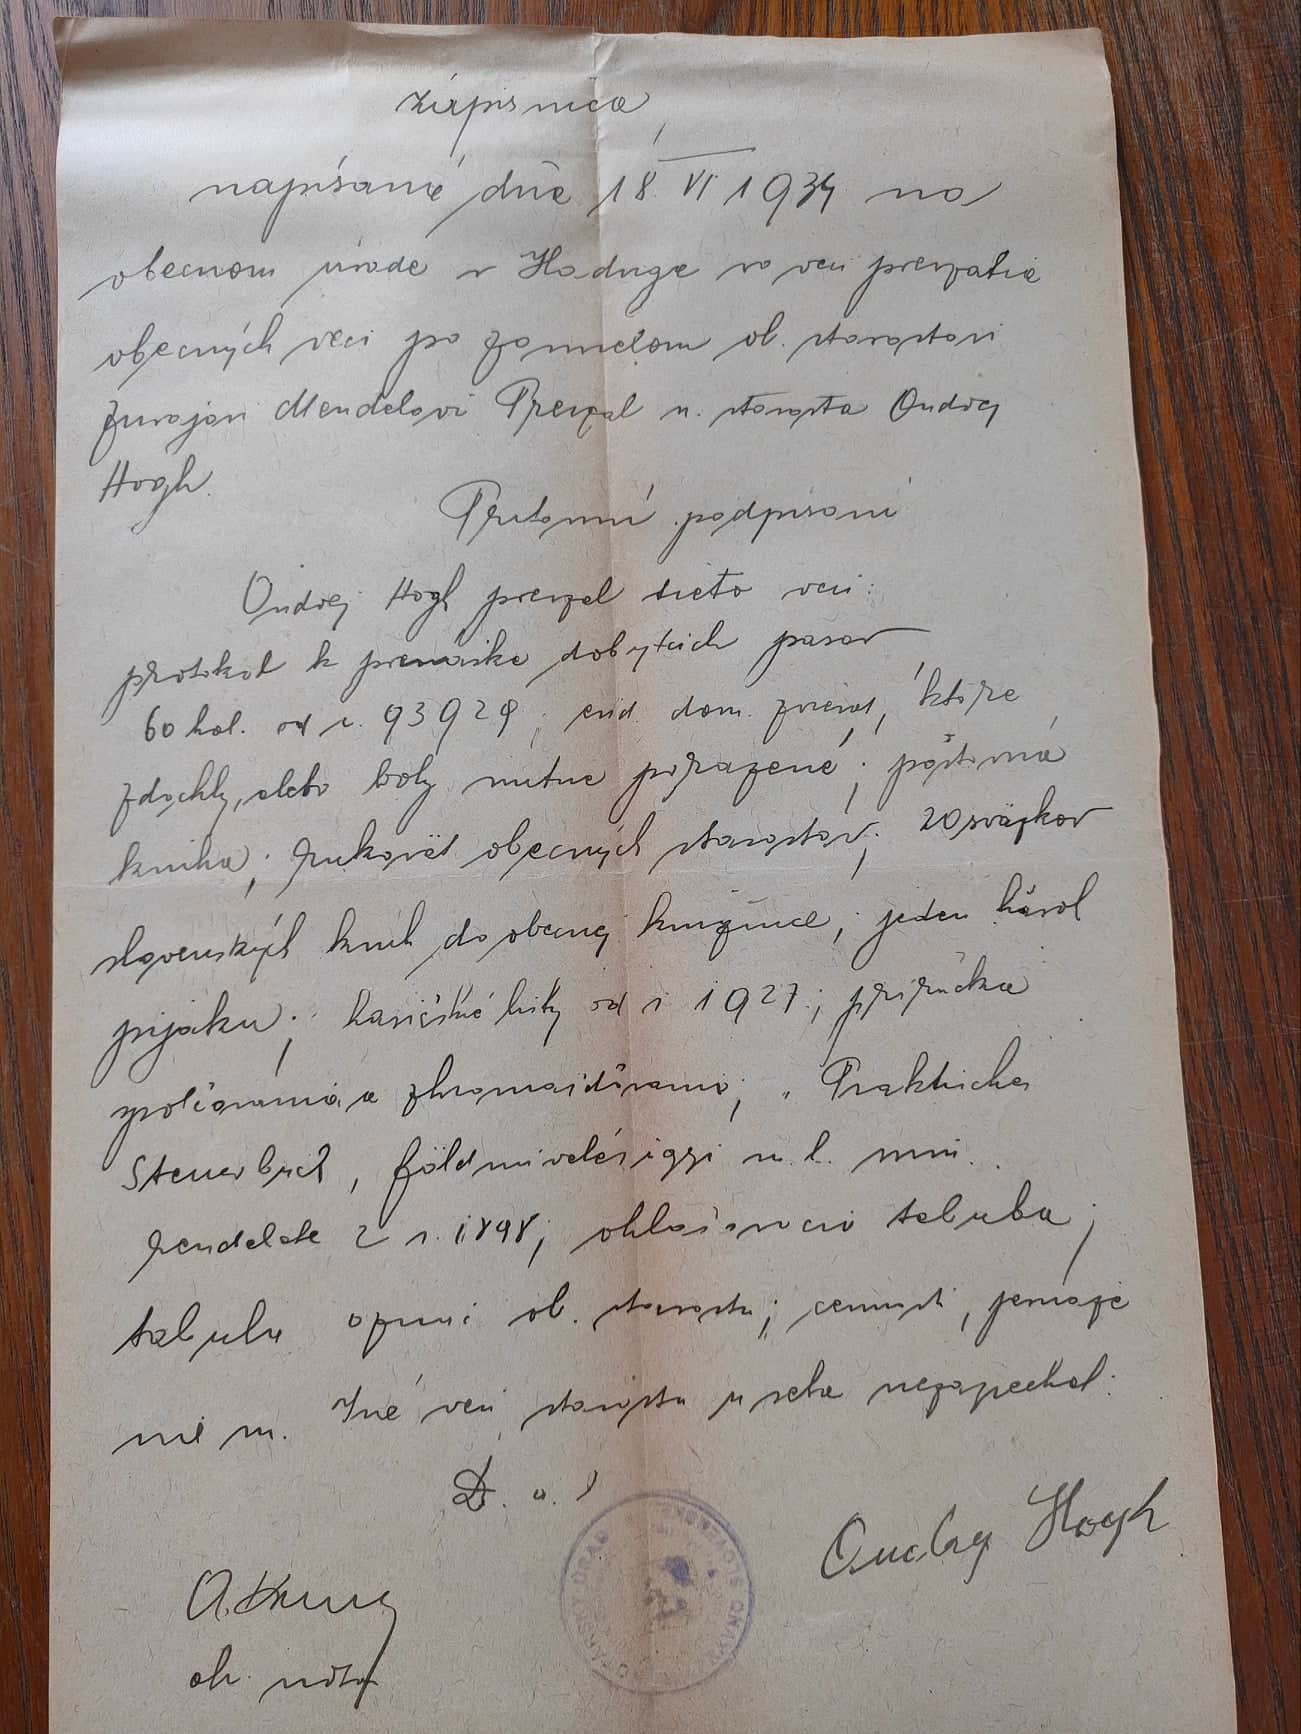 Zápisnica
napísaná dňe 18. VI 1934 na
obecnom úrade v Haduge vo veci prevzatia
obecných veci po zomrelom ob. starostovi
Mendelovi Prevzal n. starosta Ondrej
Hogh.
Prítomní podpísaní
Ondrej Hogh prevzal tieto veci:
protokol k dobytčích pasov
60 hal. od č. 93929; evid. dom. zvierat, ktoré
zdochly, alebo boly nutne porazené; poštovná
kniha; rukoväť obecných starostov; 20 sväzkov
slovenských kníh do obecnej knižnice; jeden
pijaku; hasičské listy od r. 1927; príručka
a zhromaždovania; „Praktiches
Steuerbuch, földmivelésügyi m. k. min.
rendelete z r. 1898; ohlasovacia tabuľa;
tabuľa ob. starostu;
Iné veci starosta u seba nezapechal.
D. a. h.
Ondrej Hogh
A.
ob. notár